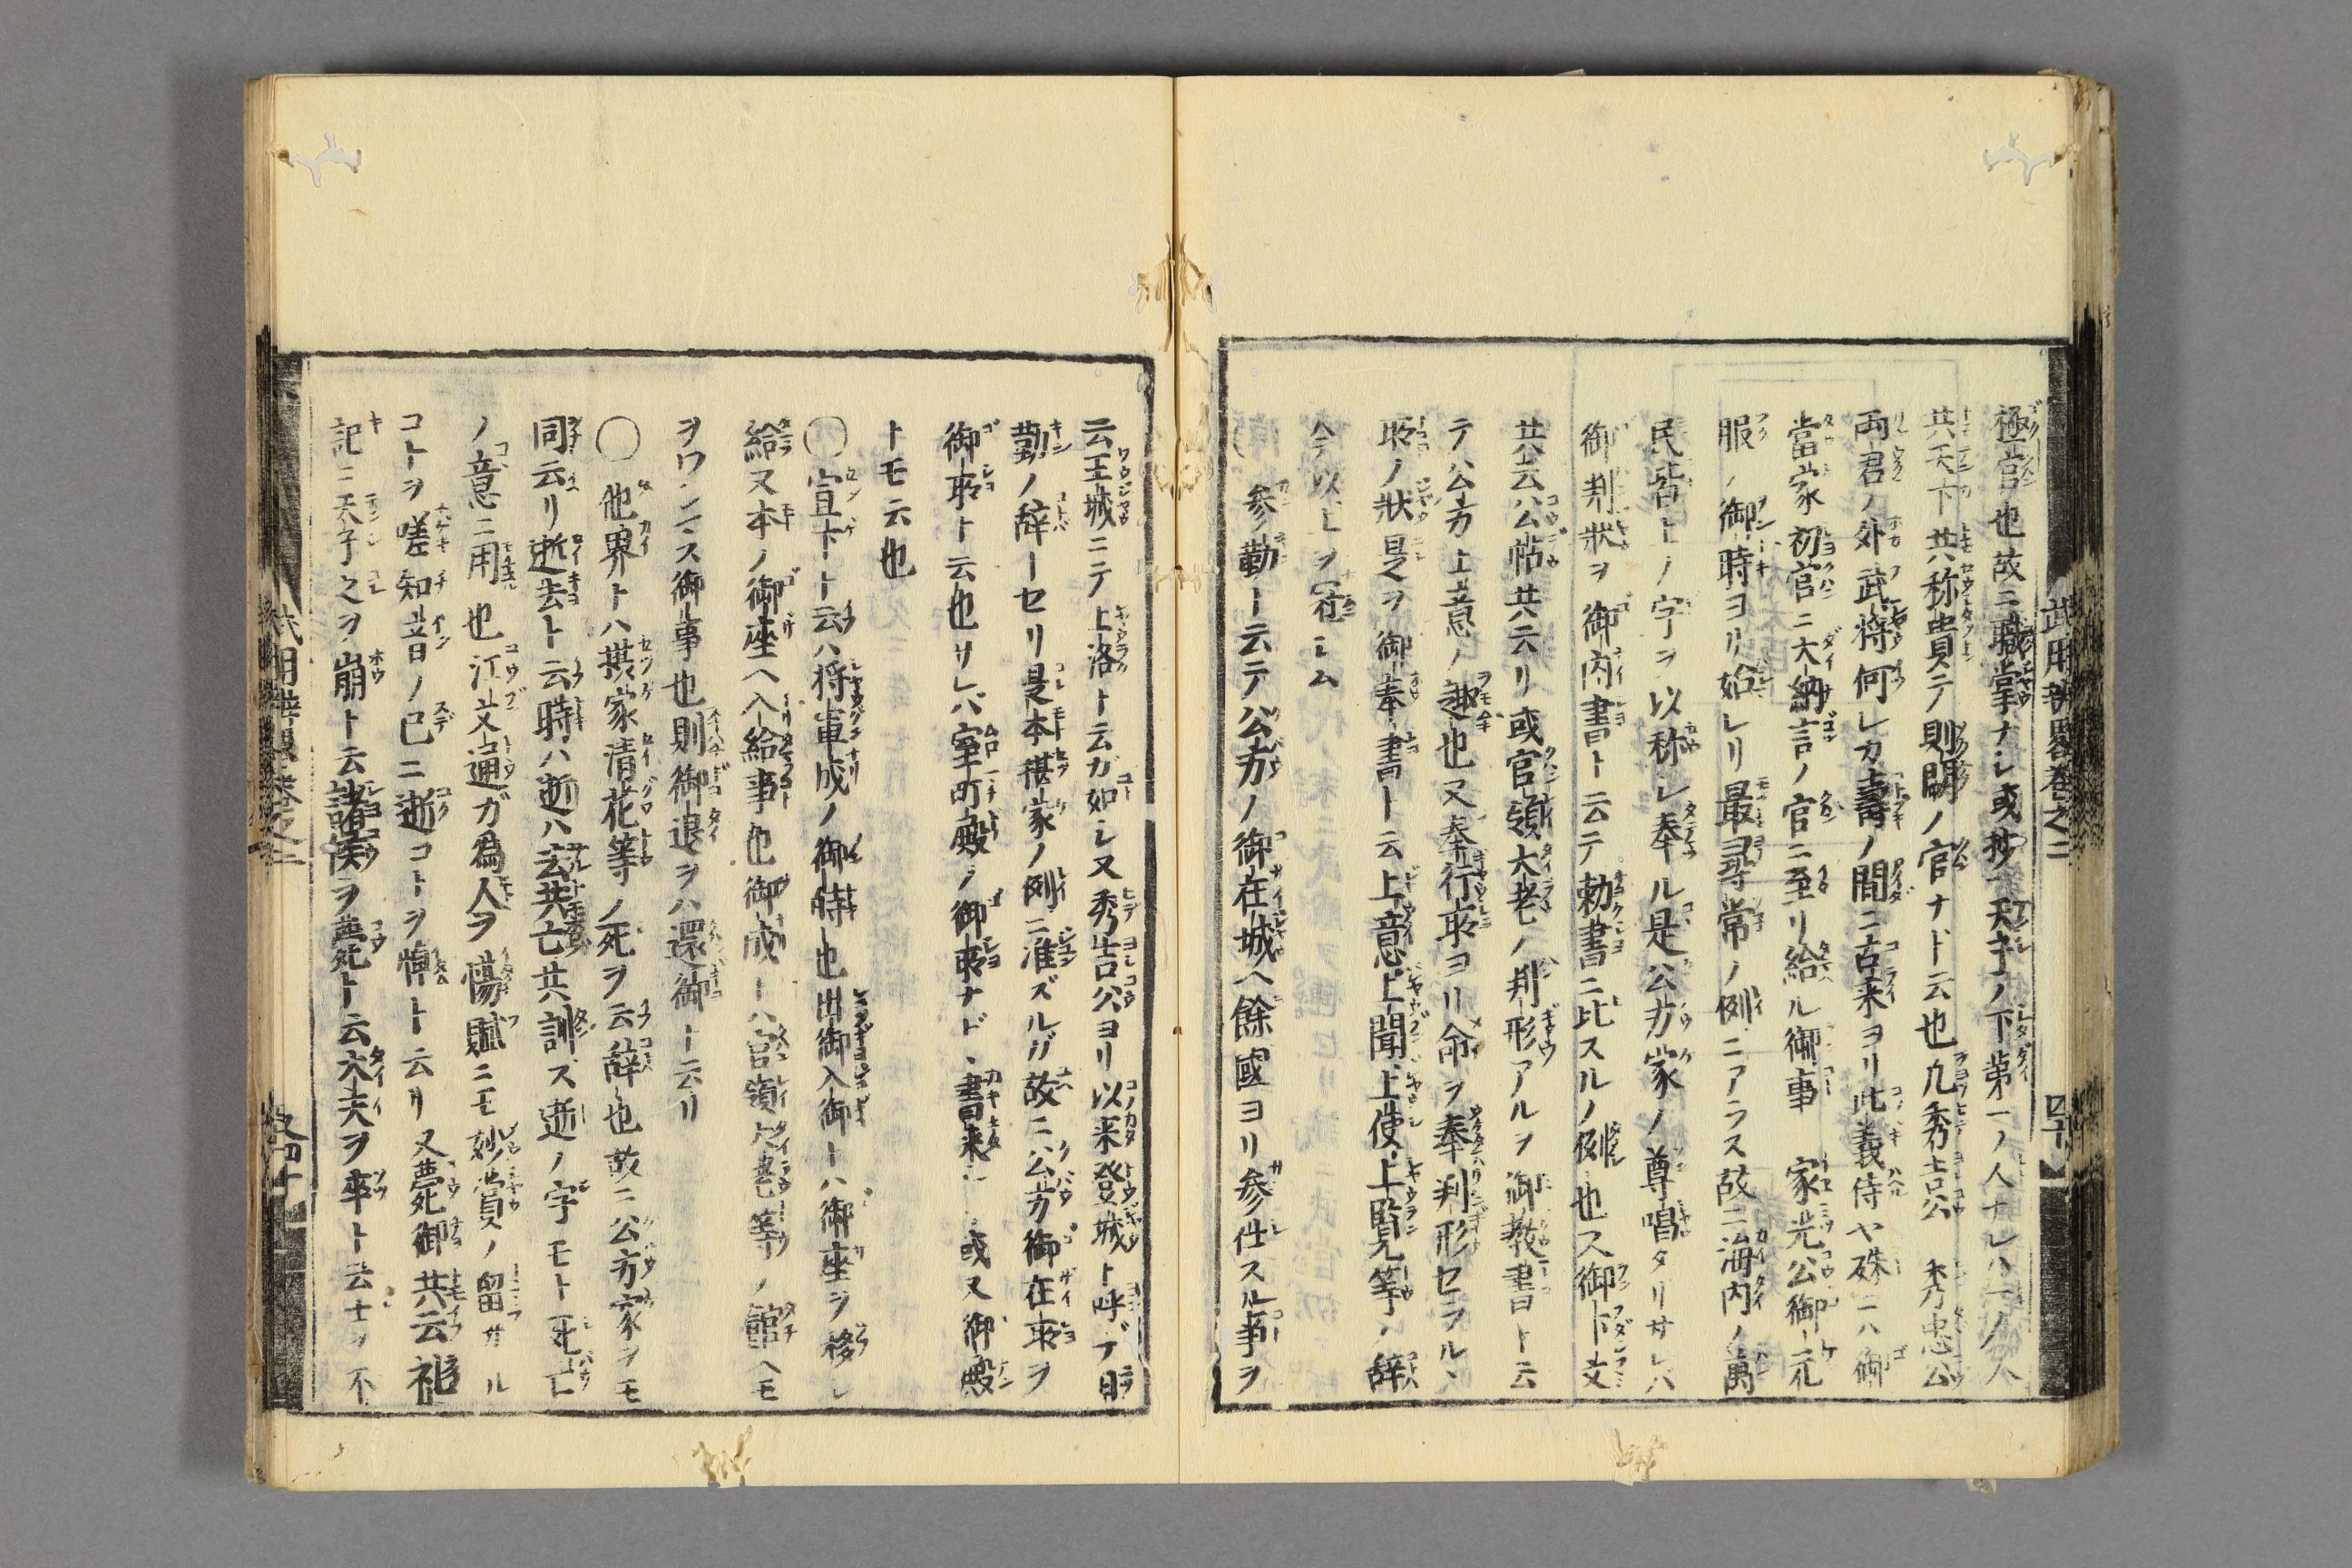 武用辨畧巻之二
四十
極官也故ニ職掌ナシ或抄ニ天子ノ下第一ノ人ナレハ一ノ人
共天下共称貴テ則闕ノ官ナド云也凢秀吉公 秀忠公
両君ノ外武将何レカ壽ノ間ニ古来ヨリ此義侍ヤ殊ニハ御
當家初官ニ大納言ノ官ニ至リ給ル御事 家光公御元
服ノ御時ヨリ始レリ最尋常ノ例ニアラス故ニ海内ノ萬
民皆上ノ字ヲ以称シ奉ル是公方家ノ尊唱タリサレハ
御判状ヲ御内書ト云テ勅書ニ比スルノ例也ス御下文
共云ハ公帖共云リ或官領大老ノ判形アルヲ御教書ト云
テ公方上意ノ趣也又奉行所ヨリ命ヲ奉判形セラルヽ
所ノ狀是ヲ御奉書ト云上意上聞上使上覧等ノ辞
今以上ヲ冠シム
参勤ト云テ公方ノ御在城ヘ餘國ヨリ参仕スル事ヲ
云王城ニテ上洛ト云ガ如シ又秀吉公ヨリ以来登城ト呼デ朝
勤ノ辞トセリ是本摂家ノ例ニ准ズルガ故ニ公方御在所ヲ
御所ト云也サレバ室町殿ノ御所ナド書来 或又御殿
トモ云也
〇宣下ト云ハ将軍成ノ御時也出御入御トハ御座ヲ移シ
給又本ノ御座ヘ入給事也御成トハ官領大老等ノ館ヘモ
ヲワンニス御事也則御退ヲハ還御ト云リ
〇他界トハ摂家清花等ノ死ヲ云辞也故ニ公方家ヲモ
同云リ逝去ト云時ハ逝ハ去共亡共訓ス逝ノ字モト死亡
ノ意ニ用也江文通ガ為人ヲ傷賦ニモ妙賞ノ留サル
コトヲ嗟知音ノ已ニ逝コトヲ悼ト云リ又薨御共云祖
記ニ天子之ヲ崩ト云諸侯ヲ薨ト云大夫ヲ卒ト云士ヲ不
武用辨畧巻之二
又四十